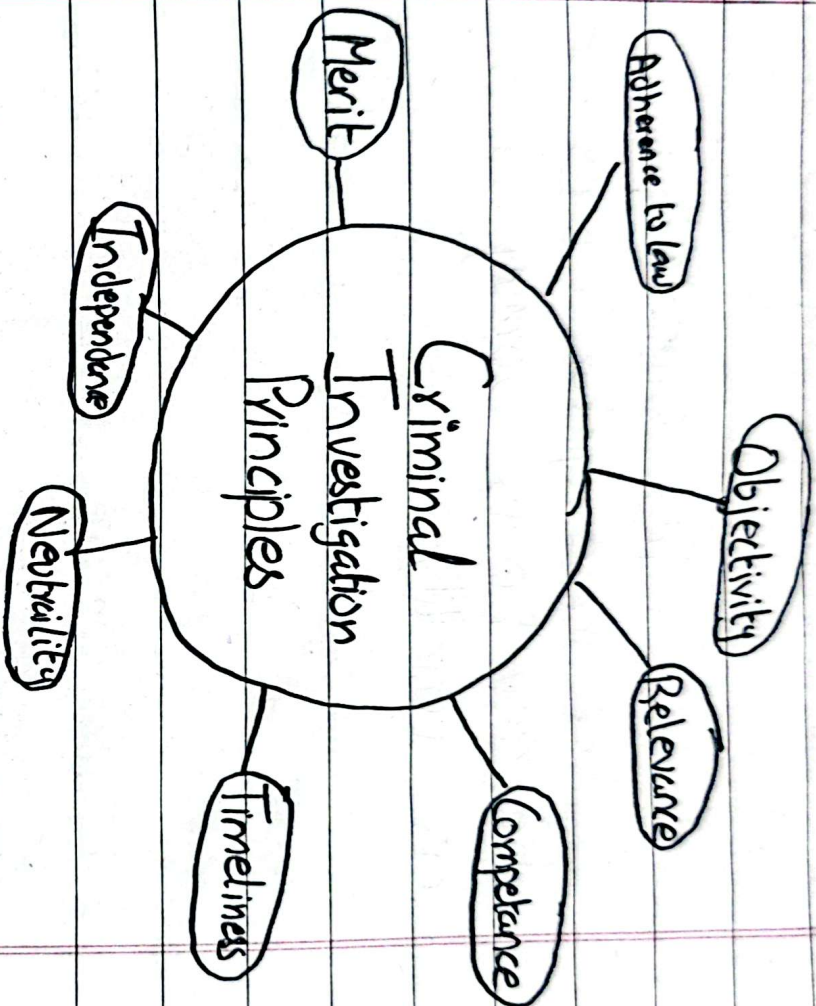 Criminal
Investigation
Principles
Adherence to law
Objectivity
Relevance
Competance
Timeliness
Neutraility
Independence
Merit